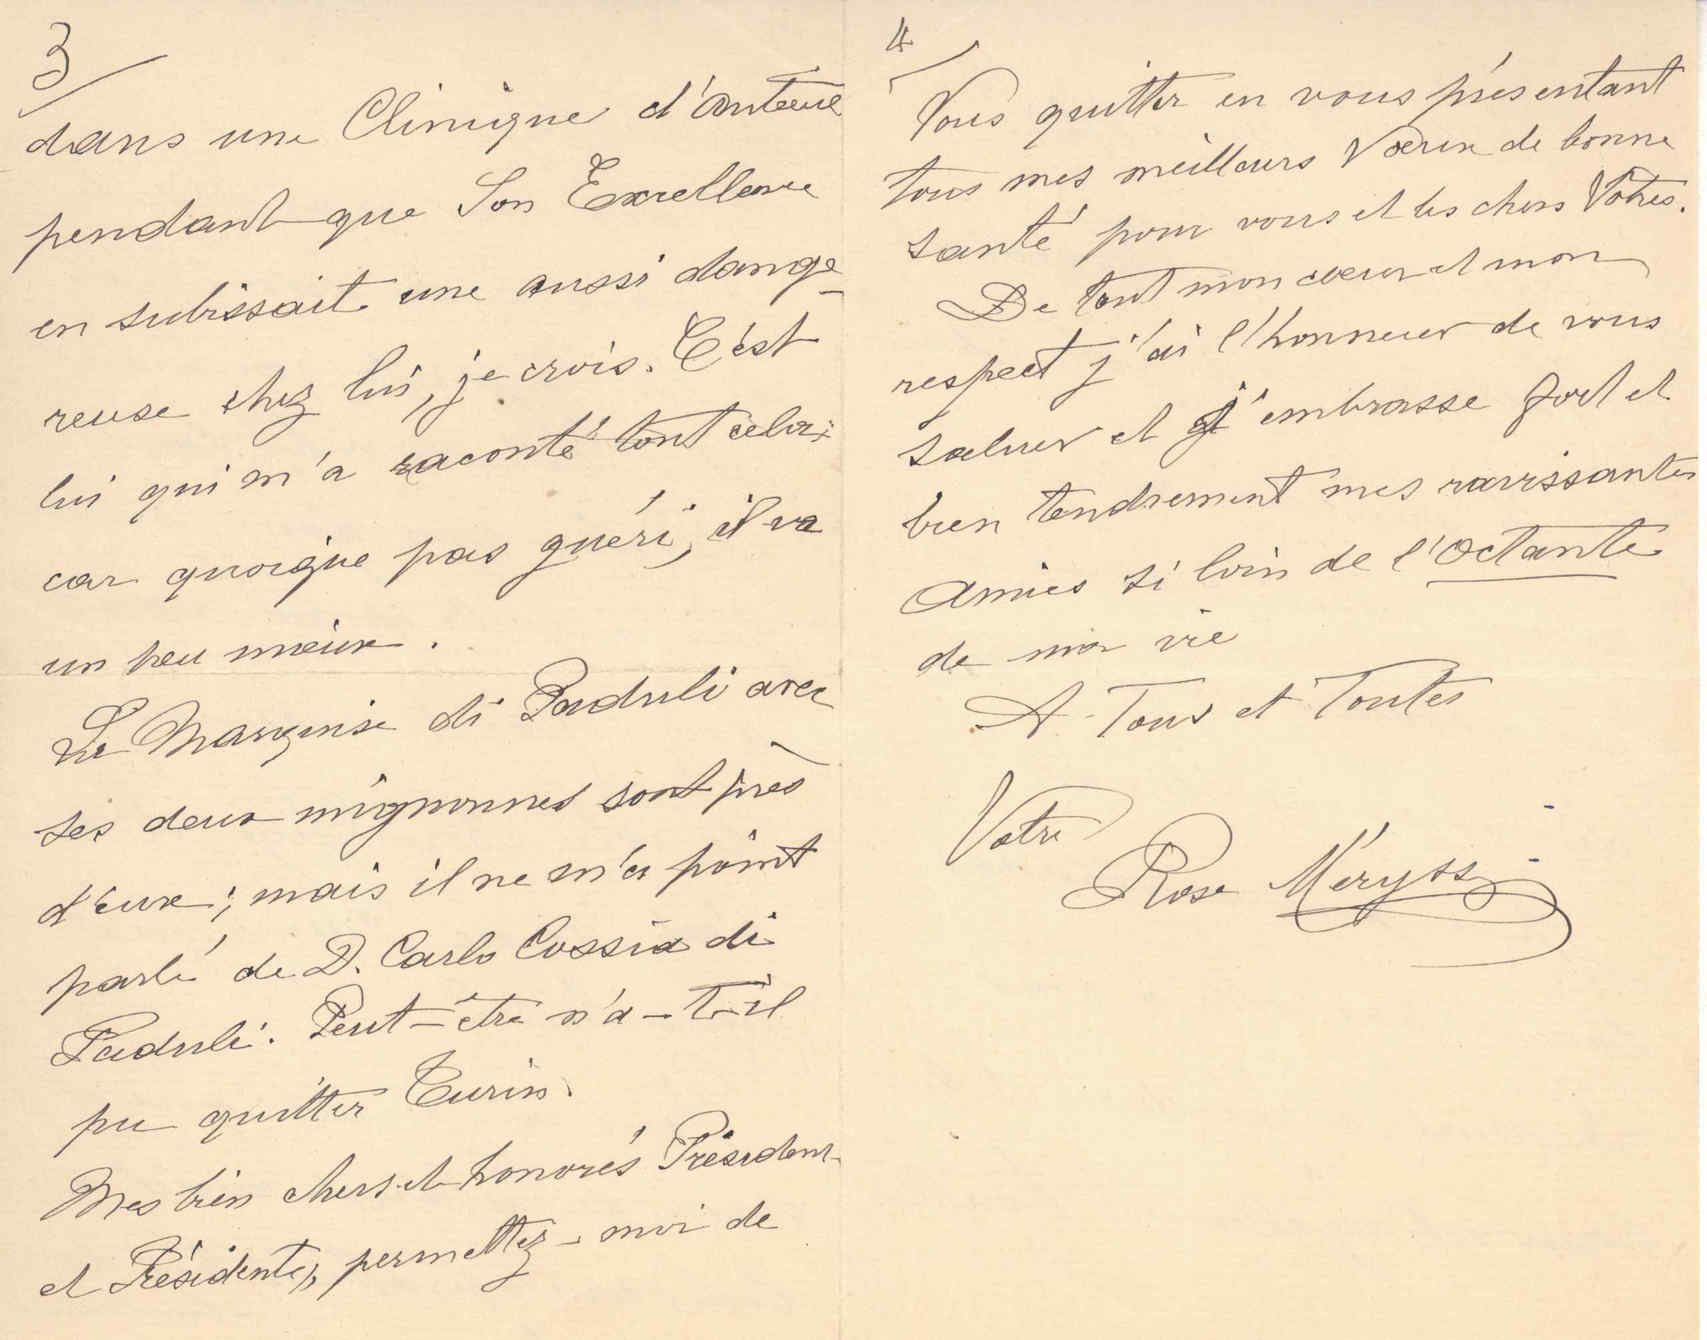 3
dans une Clinique d'Auteuil
pendant que Son Excellence
en subissait une aussi dange-
reuse chez lui, je crois. C'est
lui qui m'a raconté tout cela;
car quoique pas guéri, il va
un peu mieux.
Le Marquise di Paduli avec
ses deux mignonnes sont près
d'eux; mais il ne m'a point
parlé de D. Carlo Cossia di
Paduli. Peut-être n'a-t-il
pu quitter Turin.
Mes bien chers et honorés Président
et Présidente, permettez-moi de
4
Vous quitter en vous présentant
tous mes meilleurs Vœux de bonne
santé pour vous et les chers Vôtres.
De tout mon cœur et mon
respect j'ai l'honneur de vous
saluer et j'embrasse fort et
bien tendrement mes ravissantes
Amies si loin de l'Octante
de ma vie
A Tous et Toutes
Votre
Rose Méryss